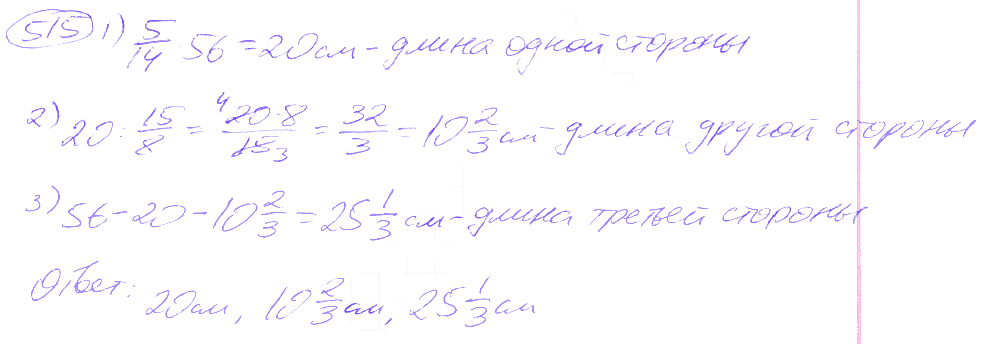 515 1) 5/14 · 56 = 20 см - длина одной стороны
2) 20 : 15/8 = 20·8/15 = 32/3 = 10 2/3 см - длина другой стороны
3) 56 - 20 - 10 2/3 = 25 1/3 см - длина третьей стороны
Ответ: 20 см, 10 2/3 см, 25 1/3 см